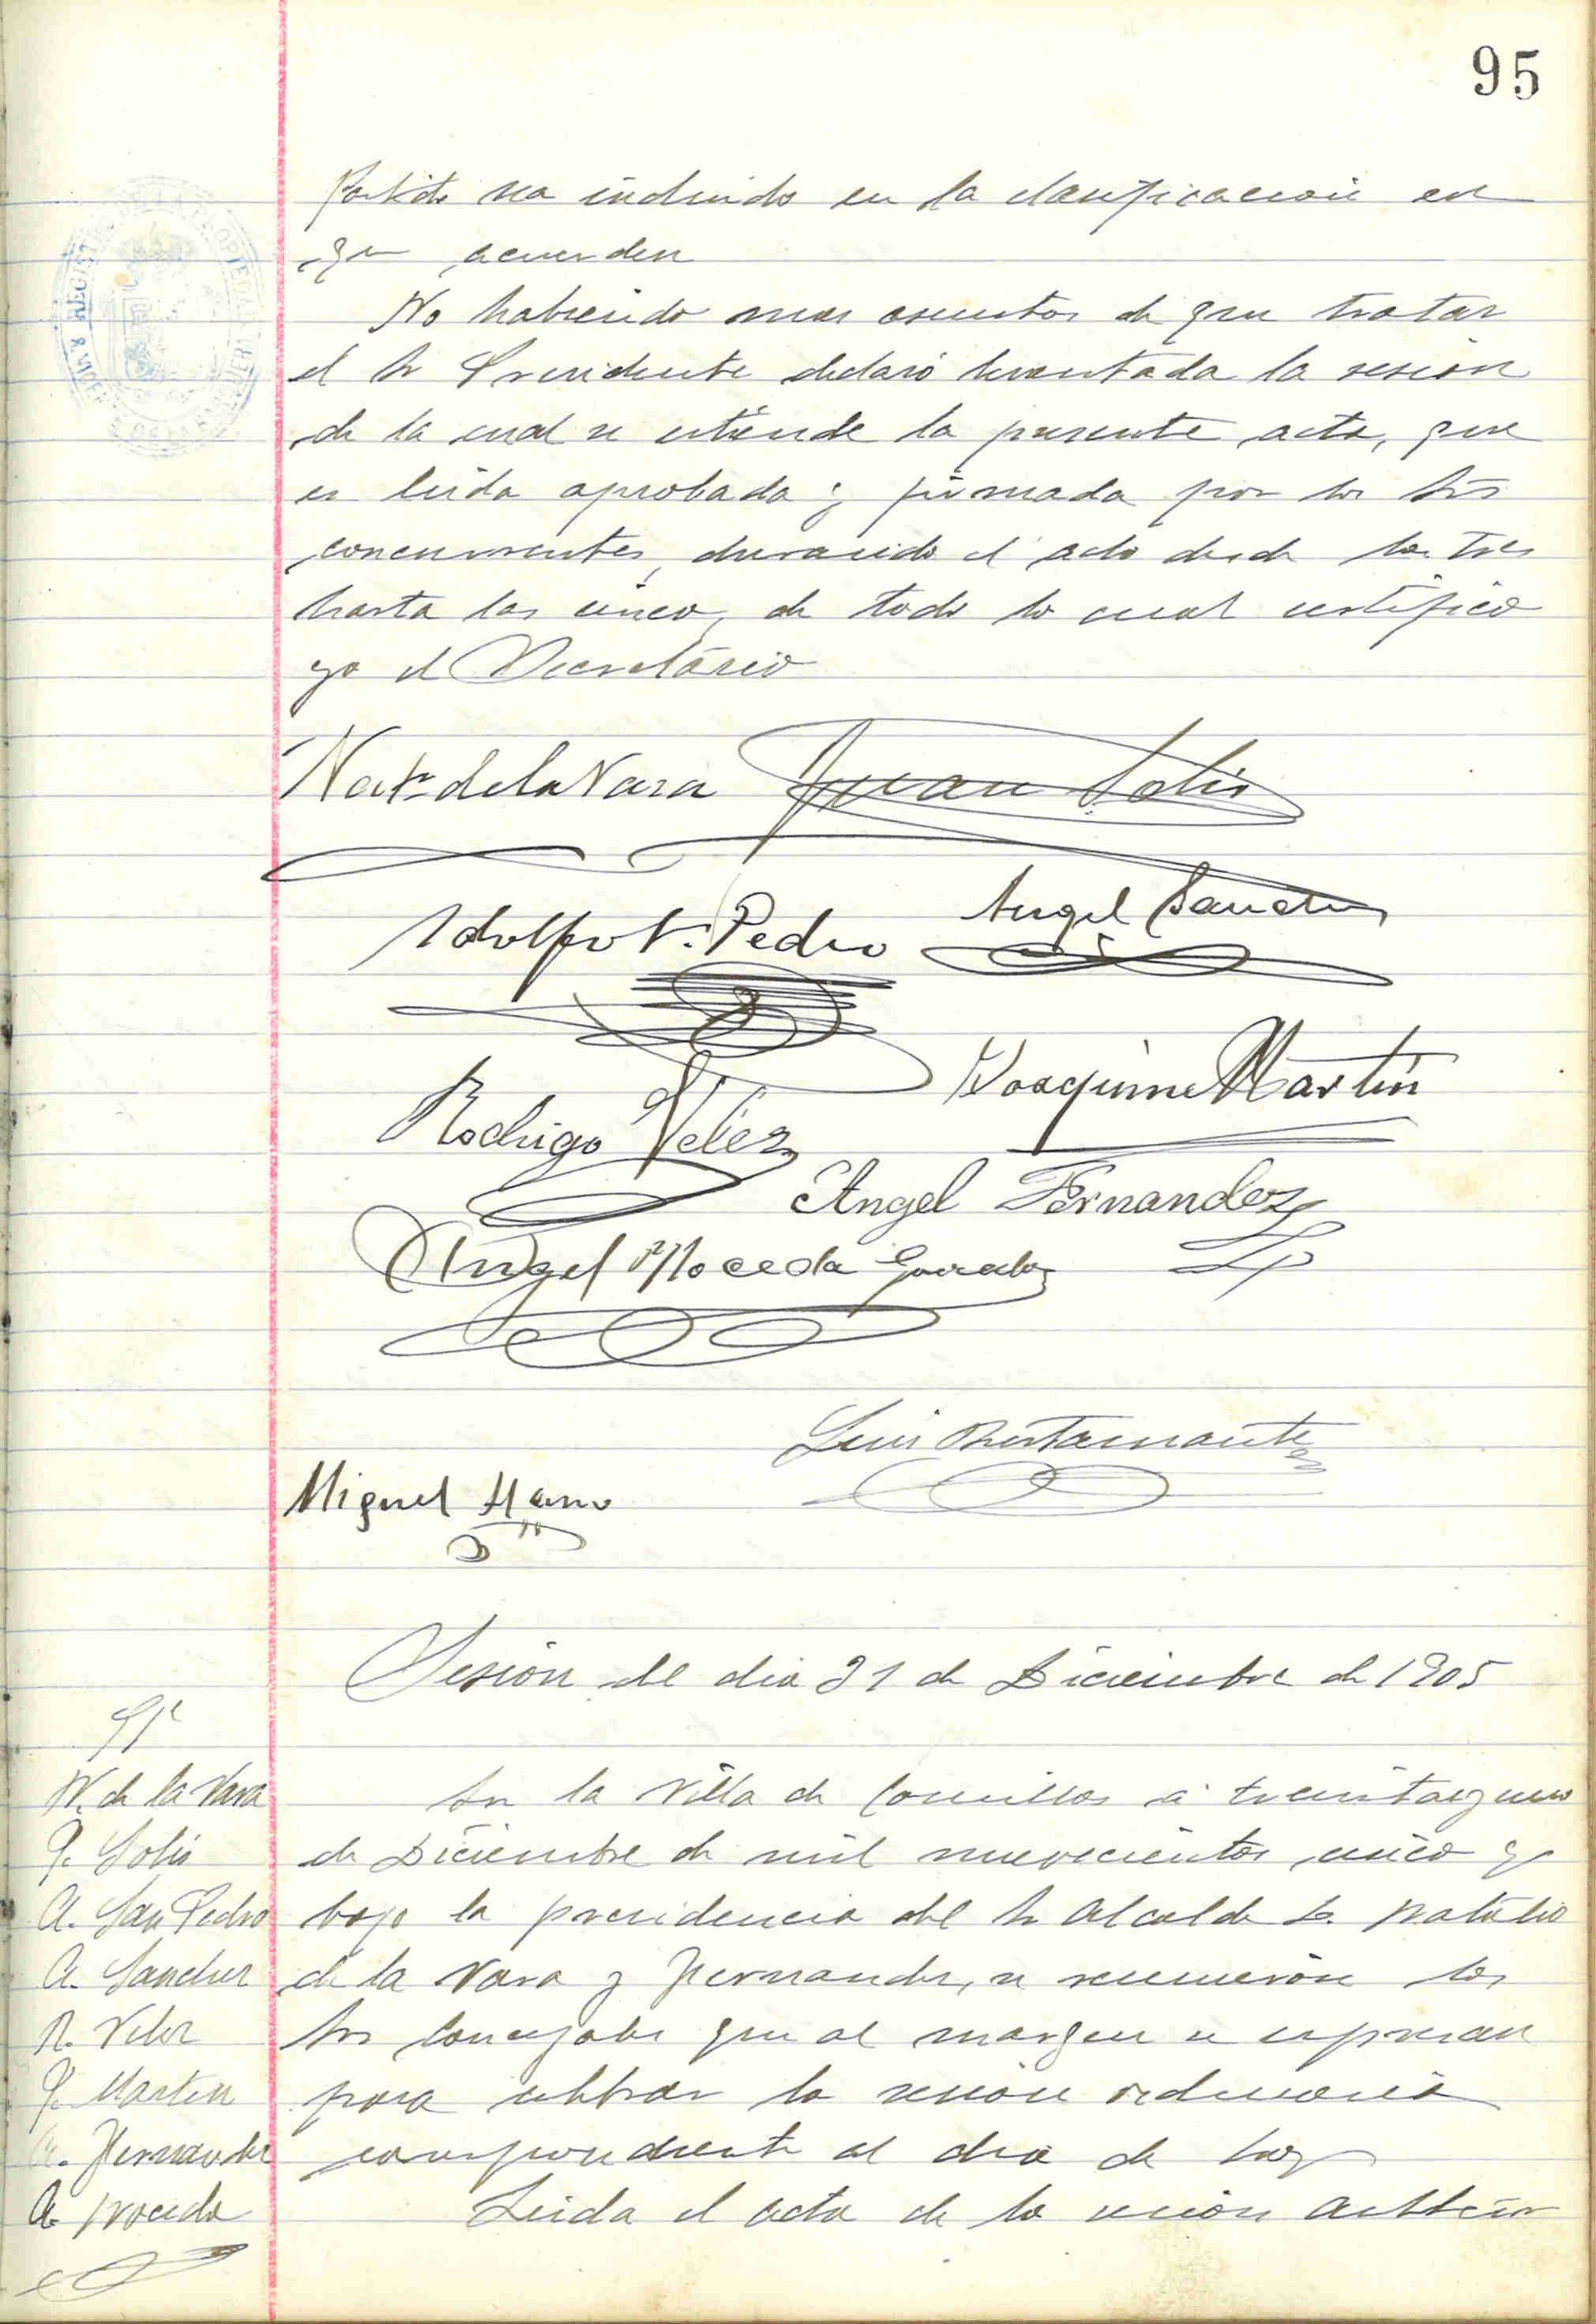 95
Partido sea incluido en la clasificación en
que acuerden
No habiendo mas asuntos de que tratar
el Sr Presidente declaró levantada la sesión
de la cual se extiende la presente acta, que
es leida aprobada y firmada por los Srs
concurrentes, durando el acto desde las tres
hasta las cinco, de todo lo cual certifico
yo el Secretário
Nat. de la Vara Juan Solis
Adolfo S. Pedro Angel Sanchez
Rodrigo Velez Joaquin Martin
Angel Fernandez
Angel Noceda Gonzalez
Luis Bustamante
Miguel
Sesion del dia 31 de Diciembre de 1905
En la Villa de Comillas á treintayuno
de Diciembre de mil novecientos cinco y
bajo la presidencia del Sr Alcalde D. Natalio
de la Vara y Fernandez, se reunieron los
Srs Concejales que al margen se expresan
para celebrar la sesión ordinaria
correspondiente al dia de hoy
Leida el acta de la sesión anterior
Srs
N. de la Vara
J. Solis
A. San Pedro
A. Sanchez
R. Velez
J. Martin
A. Fernandez
A. Noceda
REGISTRO DE LA PROPIEDAD